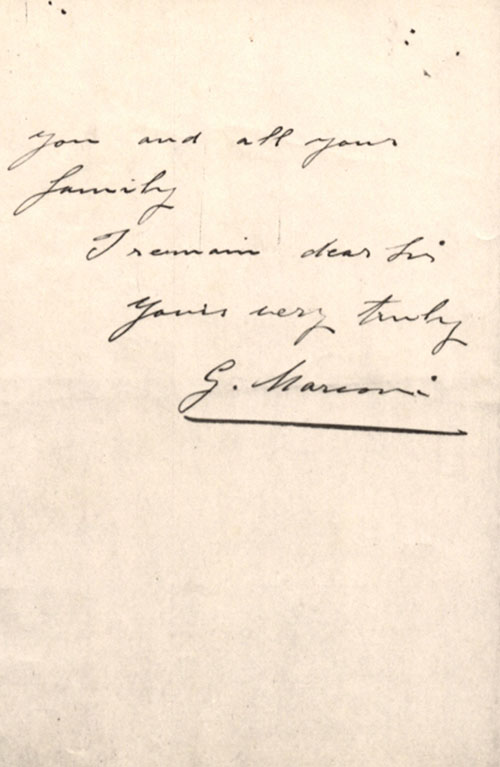 you and all your
family
I remain dear Sir
Yours very truly
G. Marconi